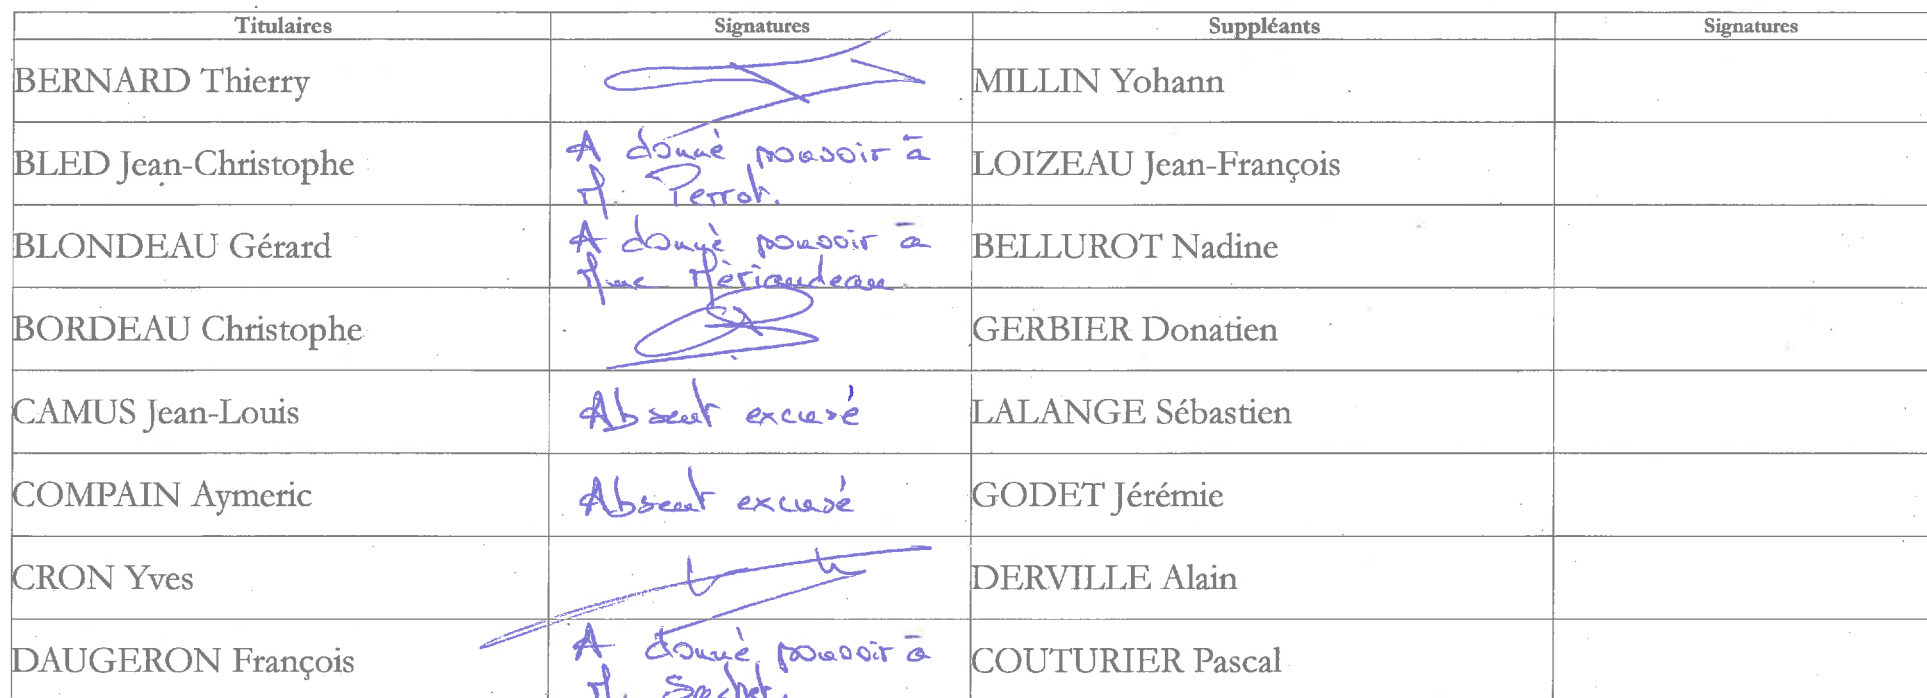 Titulaires Signatures Suppléants Signatures
BERNARD Thierry MILLIN Yohann
BLED Jean-Christophe A donné pouvoir à LOIZEAU Jean-François
M. Perrot.
BLONDEAU Gérard A donné pouvoir à BELLUROT Nadine
Mme Mériaudeau
BORDEAU Christophe GERBIER Donatien
CAMUS Jean-Louis Absent excusé LALANGE Sébastien
COMPAIN Aymeric Absent excusé GODET Jérémie
CRON Yves DERVILLE Alain
DAUGERON François A donné pouvoir à COUTURIER Pascal
M. Sachet.